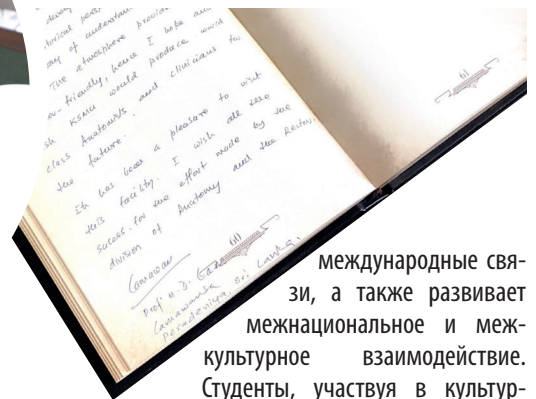 torical pers
of understan
The atmosphere provid
friendly, hence I hope an
KSMU would produce world
class Anatomists and clinicians for
the future.
It has been a pleasure to visit
this facility. I wish all the
sucess for the effort made by the
division of Anatomy and the Rector.
60
61
Prof H. D.
Peradeniya, Sri Lanka.
международные свя-
зи, а также развивает
межнациональное и меж-
культурное взаимодействие.
Студенты, участвуя в культур-